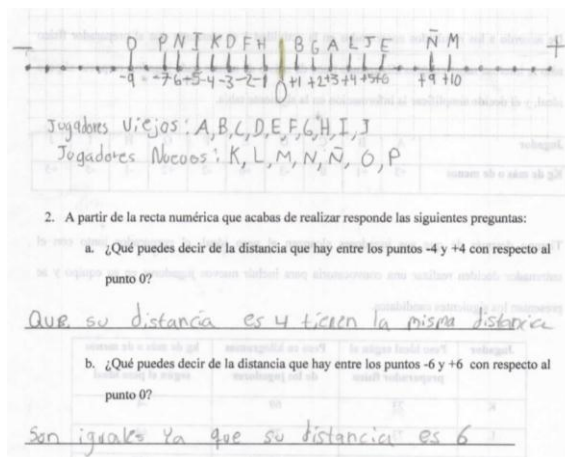 O P N I K D F H B G A L J E Ñ M
- +
-9 -7 -6 -5 -4 -3 -2 -1 0 +1 +2 +3 +4 +5 +6 +9 +10
Jugadores Viejos: A, B, C, D, E, F, G, H, I, J
Jugadores Nuevos: K, L, M, N, Ñ, O, P
2. A partir de la recta numérica que acabas de realizar responde las siguientes preguntas:
a. ¿Qué puedes decir de la distancia que hay entre los puntos -4 y +4 con respecto al
punto 0?
Que su distancia es 4 tienen la misma distancia
b. ¿Qué puedes decir de la distancia que hay entre los puntos -6 y +6 con respecto al
punto 0?
Son iguales ya que su distancia es 6